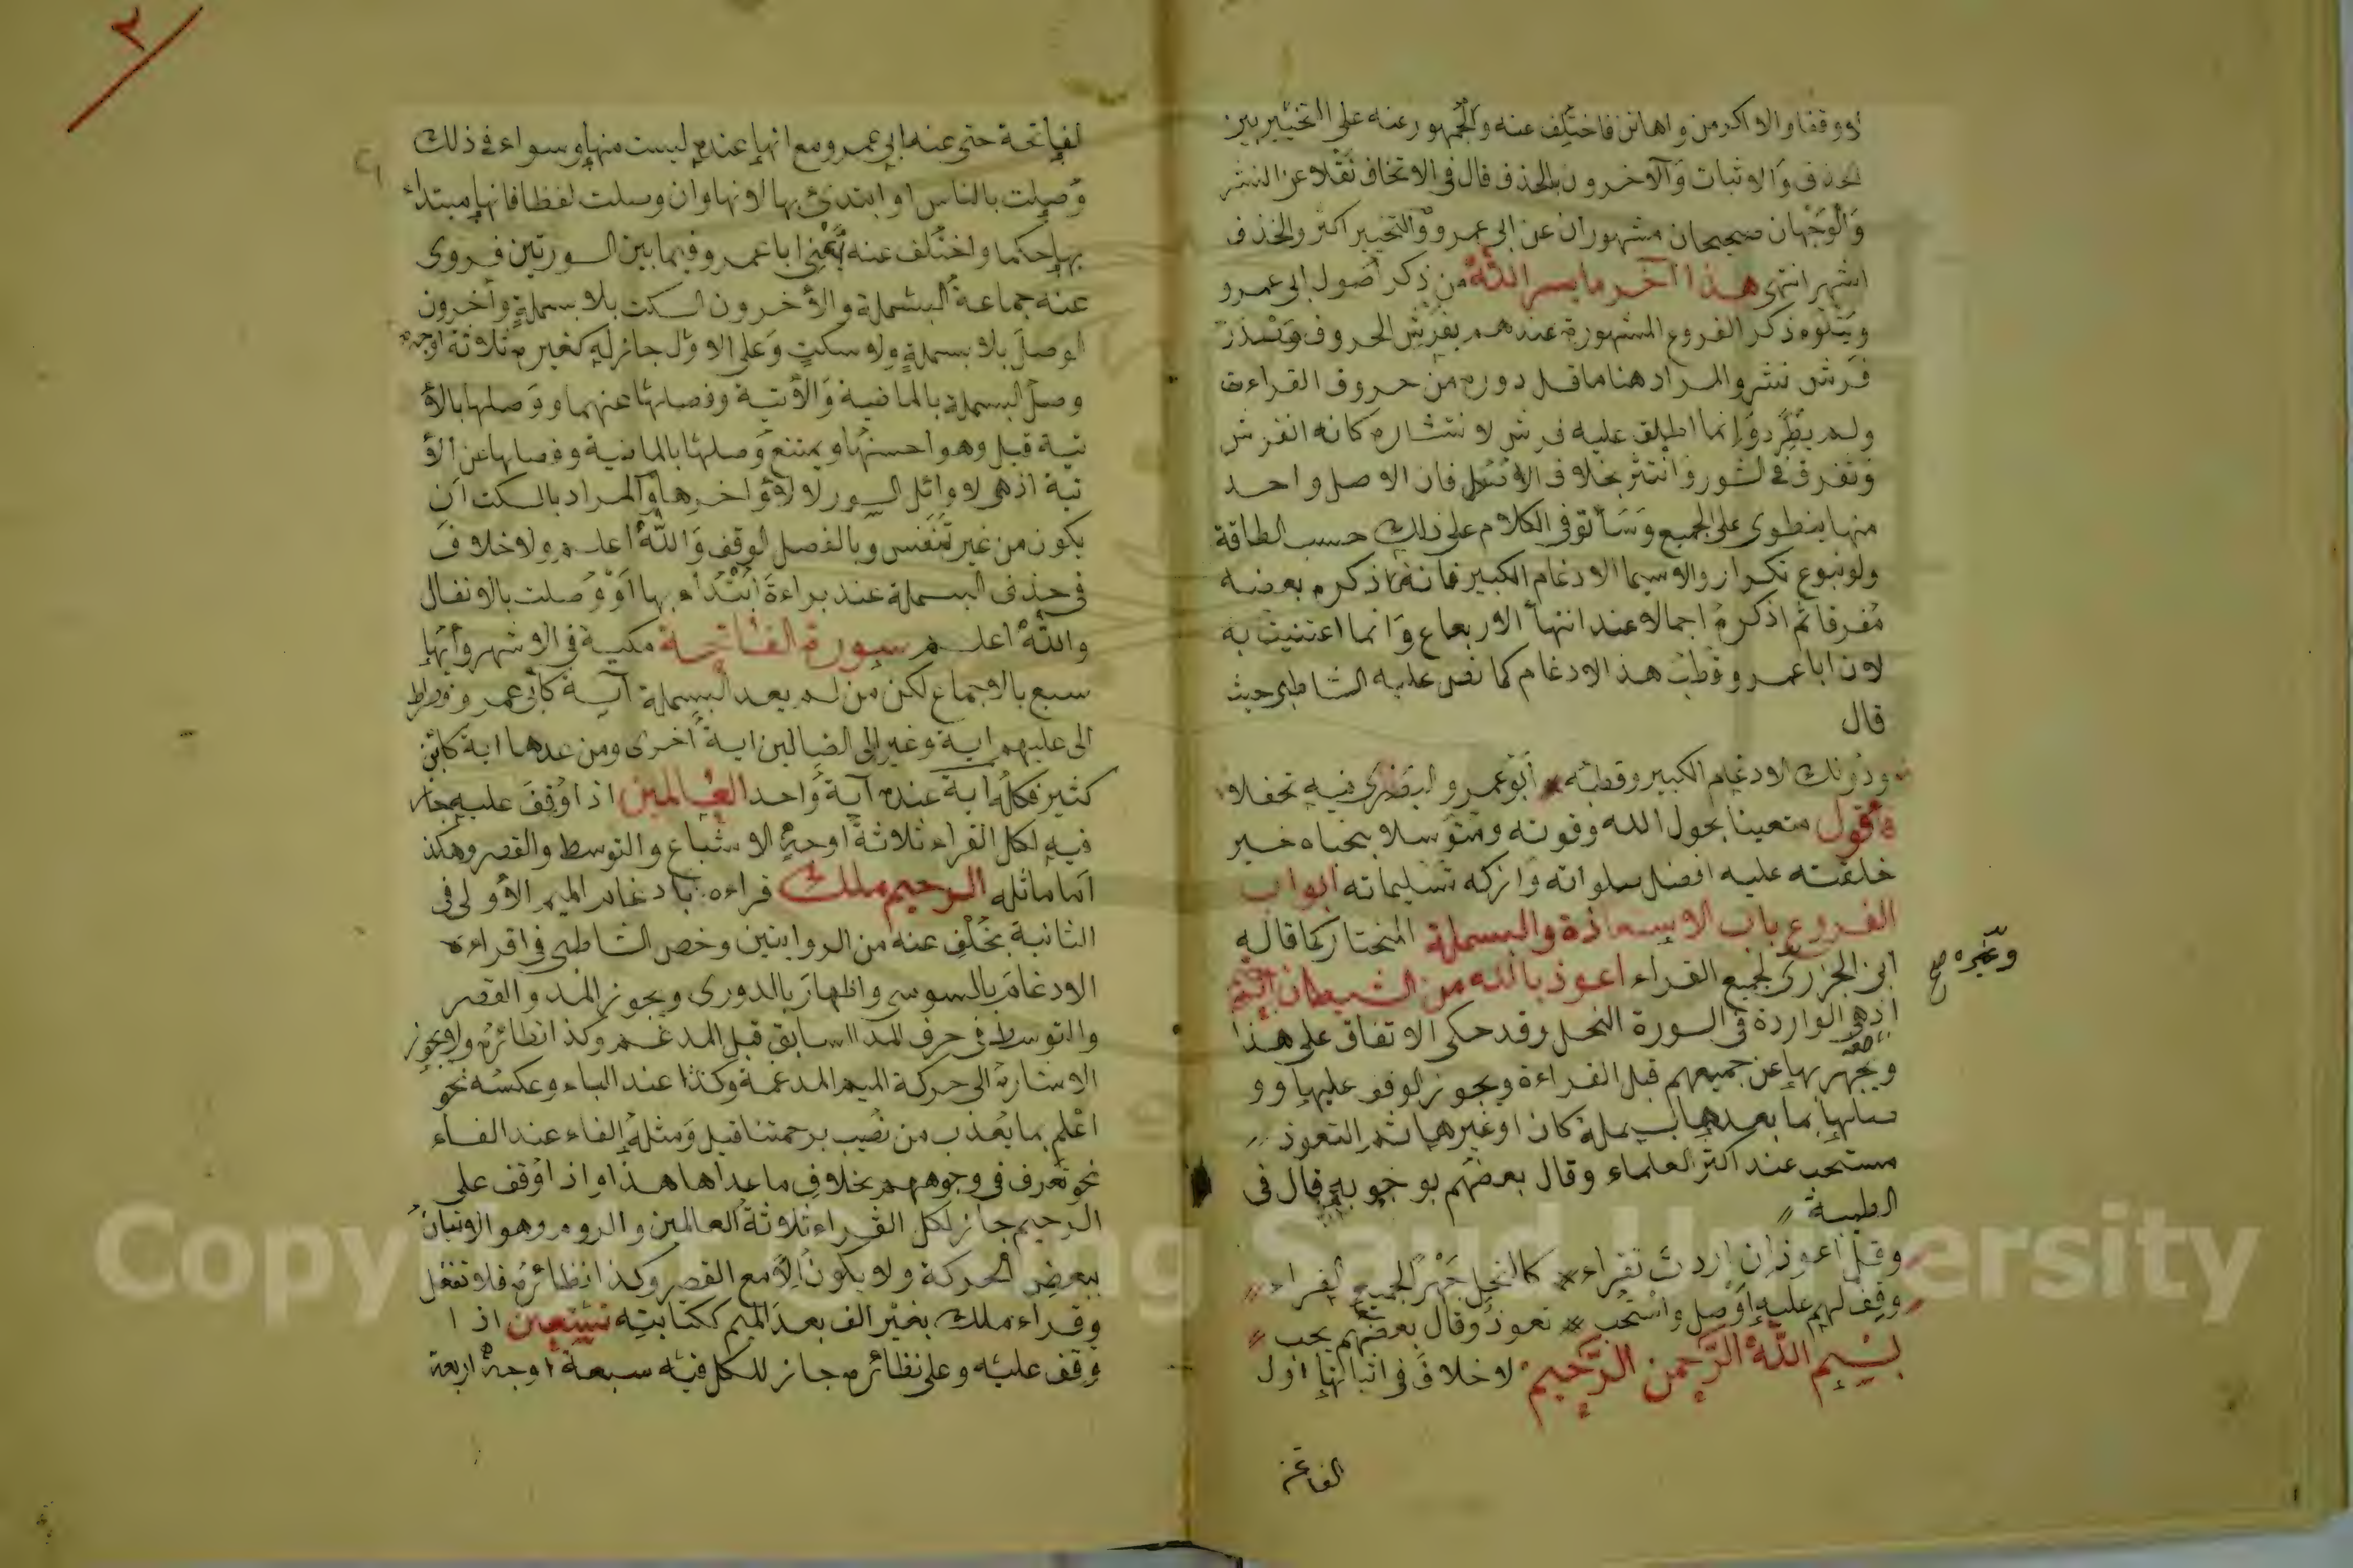 لا ووقفا والاكرمن واهانن فاختلف عنه والجمهور عنه على التخيير بين
الحذف والاثبات والآخرون بالحذف قال في الاتحاف نقلا عن النشر
والوجهان صحيحان مشهوران عن ابي عمرو والتخيير اكثر والحذف
اشهر انتهى هذا اخر ما يسر الله من ذكر اصول ابي عمرو
ويتلوه ذكر الفروع المشهورة عندهم بفرش الحروف
فرش نشر والمراد هنا ما قل دوره من حروف القراءت
ولم يطرد وانما اطلق عليه فرش لانتشاره كانه انفرش
وتفرق في السور وانتشر بخلاف الاصل فان الاصل واحد
منها ينطوي على الجميع وسأتوفى الكلام على ذلك حسب الطاقة
ولو بنوع تكرار ولاسيما الادغام الكبير فانه اذكره بعضه
مفرقا ثم اذكره اجمالا عند انتهأ الارباع وانما اعتنيت به
لان ابا عمرو قطب هذا الادغام كما نص عليه الشاطبي حيث
قال
ودونك الادغام الكبير وقطبه * ابو عمرو البصري فيه تحفلا
فاقول متعينا بحول الله وقوته ومتوسلا بجاه خير
خليقته عليه افضل صلواته وازكه تسليماته ابواب
الفروع باب الاستعاذة والبسملة المختار كما قاله
ابن الجزري لجميع القراء اعوذ بالله من الشيطان الرجيم
وغيره صح
اذ هي الواردة في السورة النحل وقد حكى الاتفاق على هذا
ويجهر بها عن جميعهم قبل القراءة ويجوز الوقف عليها وو
صلها بما بعدها بسملة كان او غيرها ثم التعوذ
مستحب عند اكثر العلماء وقال بعضهم بوجوبه قال في
الطيبة
وقل اعوذ ان اردت تقراء * كالنحل جهرا لجميع القراء
وقف لهم عليه او صل واستحب * تعوذ وقال بعضهم يجب
بسم الله الرحمن الرحيم لا خلاف في اثباتها اول
الفاتحة
٢
لفاتحة حتى عند ابي عمرو مع انها عنده ليست منها وسواء في ذلك
وصلت بالناس او ابتدئ بها لانها وان وصلت لفظا فانها مبتداء
بها حكما واختلف عنه يعني ابا عمرو فيما بين السورتين فروى
عنه جماعة البسملة والأخرون السكت بلا بسملة وآخرون
الوصل بلا بسملة ولا سكت وعلى الاول جائز له كغيره ثلاثة اوجه
وصل البسملة بالماضية والأتية وفصلها عنهما ووصلها بالأ
تية قيل وهو احسنها ويمتنع وصلها بالماضية وفصلها عن الأ
تية اذ هي لاوائل السور لا لاواخرها والمراد بالسكت ان
يكون من غير تنفس وبالفصل لوقف والله اعلم ولا خلاف
في حذف البسملة عند براءة ابتداء بها او وصلت بالانفال
والله اعلم سورة الفاتحة مكية في الاشهر وأيها
سبع بالاجماع لكن من لم يعد البسملة آية كأبي عمرو
الى عليهم اية وغير الى الضالين اية أخرى ومن عدها اية كابن
كثير فكله اية عنده آية واحد العالمين اذا اوقف عليه جاز
فيه لكل القراء ثلاثة اوجه الاشباع والتوسط والقصر وهكذ
اما ماثله الرحيم ملك قراءه بادغام الميم الأولى في
الثانية بخلف عنه من الروايتين وخص الشاطبي في اقراءه
الادغام بالسوسي واظهار بالدوري ويجوز المد والقصر
والتوسط في حرف المد السابق قبل المدغم وكذا نظائره ولا يجوز
الاشارة الى حركة الميم المدغمة وكذا عند الباء وعكسه نحو
اعلم بما يعذب من نصيب برحمتنا قيل ومثله الفاء عند الفاء
نحو تعرف في وجوههم بخلاف ما عداها هذا واذا وقف على
الرحيم جاز لكل القراء ثلاثة العالمين والروم وهو الاتيان
ببعض الحركة ولا يكون الا مع القصر وكذا نظائره فلا تغفل
وقراء ملك بغير الف بعد الميم ككتابته نستعين اذا
وقف عليه وعلى نظائره جاز للكل فيه سبعة اوجه اربعة
Copyright © King Saud University